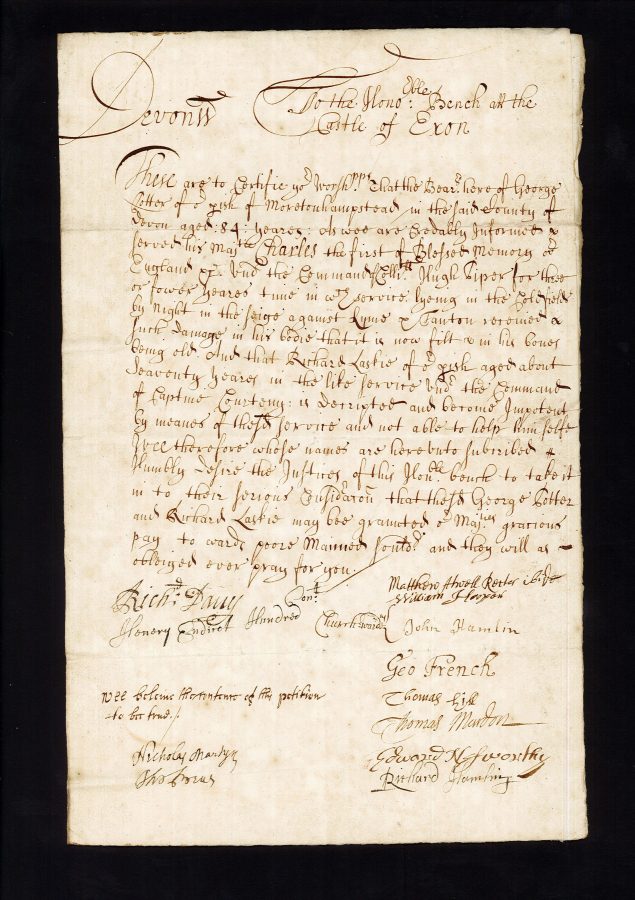 Devon
To the Hono:ble Bench att the
Castle of Exon
These are to Certifie yor Worshpps That the Bearr here of George
Potter of ye pish of Moretonhampstead in the said County of
Devon aged :84: yeares: As wee are Credably Informed &
served his Matie Charles the first of Blessed Memory of
England &c. Undr the Command Collll. Hugh Piper for three
or fower yeares time in wch service lyeing in the
by Night in the seige against Lyme & Tanton received &
such damage in his bodie that it is now filt in his bones
being old. And that Richard Laskie of ye pish aged about
Seaventy yeares in the like service Undr the Command
of Captine Courteny: is decripted and become Impotent
by meanes of the sd service and not able to help himselfe
Wee therefore whose names are hereunto subcribed
Humbly desire the Justices of this Honble bench to take it
in to their serious Considracon that the sd George Potter
and Richard Laskie may bee graunted ye Majties gracious
pay to wards poore Maimed and they will as
obleiged ever pray for you.
Richd Davy
Matthew Atwell Rector
William Hooper
Henery Endicot Hundred Const
Churchwardns
John Hamlin
Geo French
Wee beleive the contents of this petition
to bee true.
Thomas Hill
Thomas
Nicholas Martyn
Edward
Richard Hamling